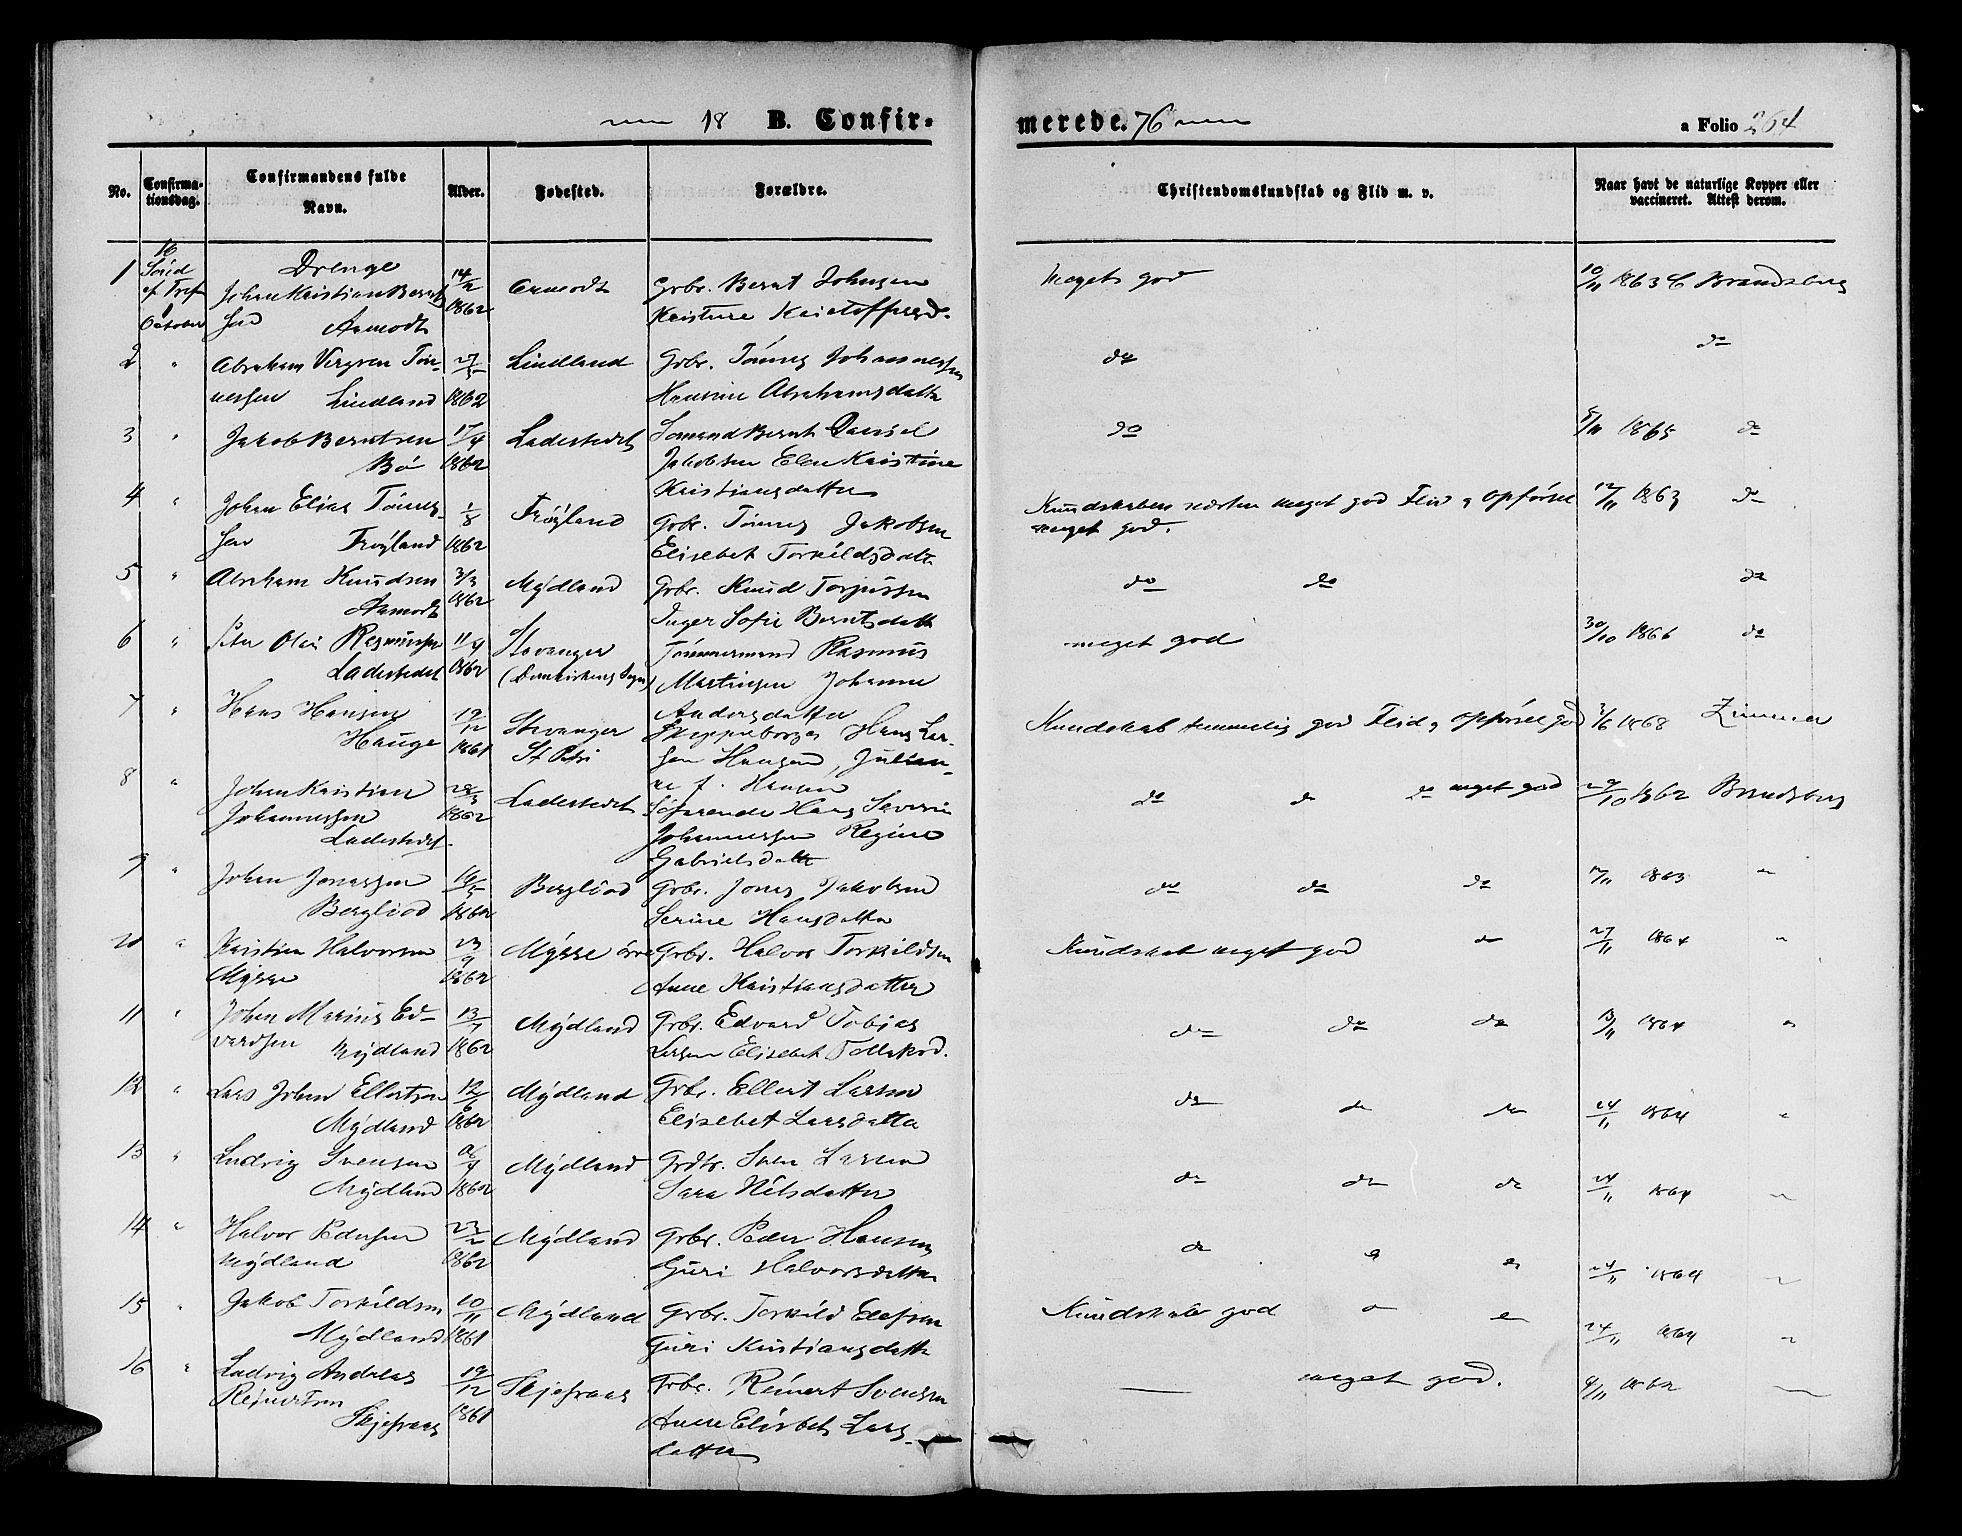 18 B. Confir-
merede. 76
a Folio 264
No.
Confirma-
tionsdag.
Confirmandens fulde
Navn.
Alder.
Fødested.
Forældre.
Christendomskundskab og Flid m. v.
Naar havt de naturlige Kopper eller
vaccineret. Attest derom.
16
Sønd
ef Tref
October
Drenge
1 Johan Kristian Bernt- 14/2 Aamodt Grbr. Bernt Johnsen Meget god 10/11 1863 C Brandsberg
sen Aamodt 1862
2 " Abraham Vergren Tøn- 27/5 Lindland Grbr. Tønnes Johannessen do do
nessen Lindland 1862 Abrahamsdatter
3 " Jakob Berntsen 17/4 Ladestedet Sømand Bernt Daniel do 5/11 1865 do
Bø 1862 Jakobsen Elen Kristine
Kristiansdatter
4 " Johan Elias Tønnes- 1/8 Frøyland Grbr. Tønnes Jakobsen Kundskaben næsten meget god Flid og Opførsel 12/11 1863 do
sen Frøyland 1862 Elisebet Torkildsdatt meget god.
5 " Abraham Knudsen 3/3 Mydland Grbr. Knud Torjussen do do do
Aamodt 1862 Inger Sofie Berntsdatt
6 " Peter Olai Rasmussen 11/4 Stavanger Tømmermand Rasmus meget god 30/10 1866 do
Ladestedet 1862 (Domkirkens Sogn) Martinsen Johanne
Andersdatter
7 " Hans Hansen 19/12 Stavanger Skipperborger Hans Lar- Kundskab temmelig god Flid og Opførsel god 3/6 1868 Zimmer
Hauge 1861 St Petri sen Hansen, Julian-
ne f. Hansen
8 " Johan Kristian 28/3 Ladestedet Søfarende Hans Severin do do do meget god 29/10 1862 Brandsberg
Johannessen 1862 Johannessen Regine
Ladestedet. Gabrielsdatt
9 " Johan Jonassen 19/5 Bergliod Grbr. Jonas Jakobsen do do do 12/11 1863 "
Bergliod 1862 Serine Hansdatter
10 " Kristian Halvorsen 23/9 Mysse Grbr. Halvor Torkildsen Kundskab meget god do 27/11 1864 "
Mysse 1862 Anne Kristiansdatter
11 " Johan Marius Ed- 13/7 Mydland Grbr. Edvard Tobias do do do 13/11 1864 "
vardsen Mydland 1862 Larsen Elisebet Tollaksd.
12 " Lars Johan Ellertsen 12/6 Mydland Grbr. Ellert Larsen do do do 24/11 1864 "
Mydland 1862 Elisebet Larsdatter
13 " Ludvig Svensen Mydland Grbr. Sven Larsen do do do 24/11 1864 "
Mydland 1862 Sara Nilsdatter
14 " Halvor Pedersen 23/2 Mydland Grbr. Peder Hansen do 24/11 1864 "
Mydland 1862 Guri Halvorsdatter
15 " Jakob Torkildsen 10/11 Mydland Grbr. Torkild Elefsen Kundskab god 24/11 1864 "
Mydland 1861 Guri Kristiansdatt
16 " Ludvig Andreas 19/12 Skjefraas Grbr. Reinert Svensen meget god. 9/11 1862 "
Reinertsen 1861 Anne Elisbet Lars-
Skjefraas datter